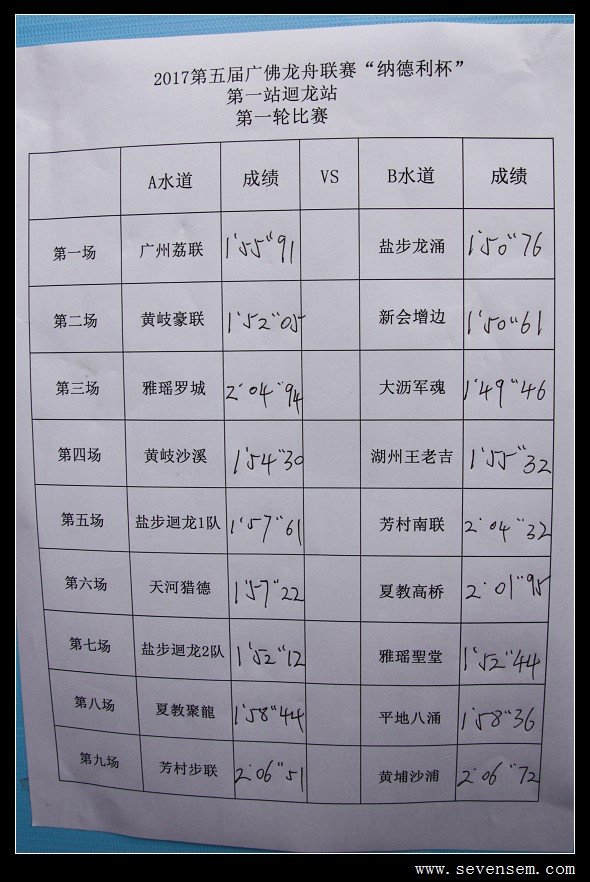 2017第五届广佛龙舟联赛“纳德利杯”
第一站迴龙站
第一轮比赛
A水道 成绩 VS B水道 成绩
第一场 广州荔联 1'55"91 盐步龙涌 1'50"76
第二场 黄岐豪联 1'52"05 新会增边 1'50"61
第三场 雅瑶罗城 2'04"94 大沥军魂 1'49"46
第四场 黄岐沙溪 1'54"30 湖州王老吉 1'55"32
第五场 盐步迴龙1队 1'57"61 芳村南联 2'04"32
第六场 天河猎德 1'57"22 夏教高桥 2'01"95
第七场 盐步迴龙2队 1'52"12 雅瑶聖堂 1'52"44
第八场 夏教聚龍 1'58"44 平地八涌 1'58"36
第九场 芳村步联 2'06"51 黄埔沙浦 2'06"72
www.sevensem.com